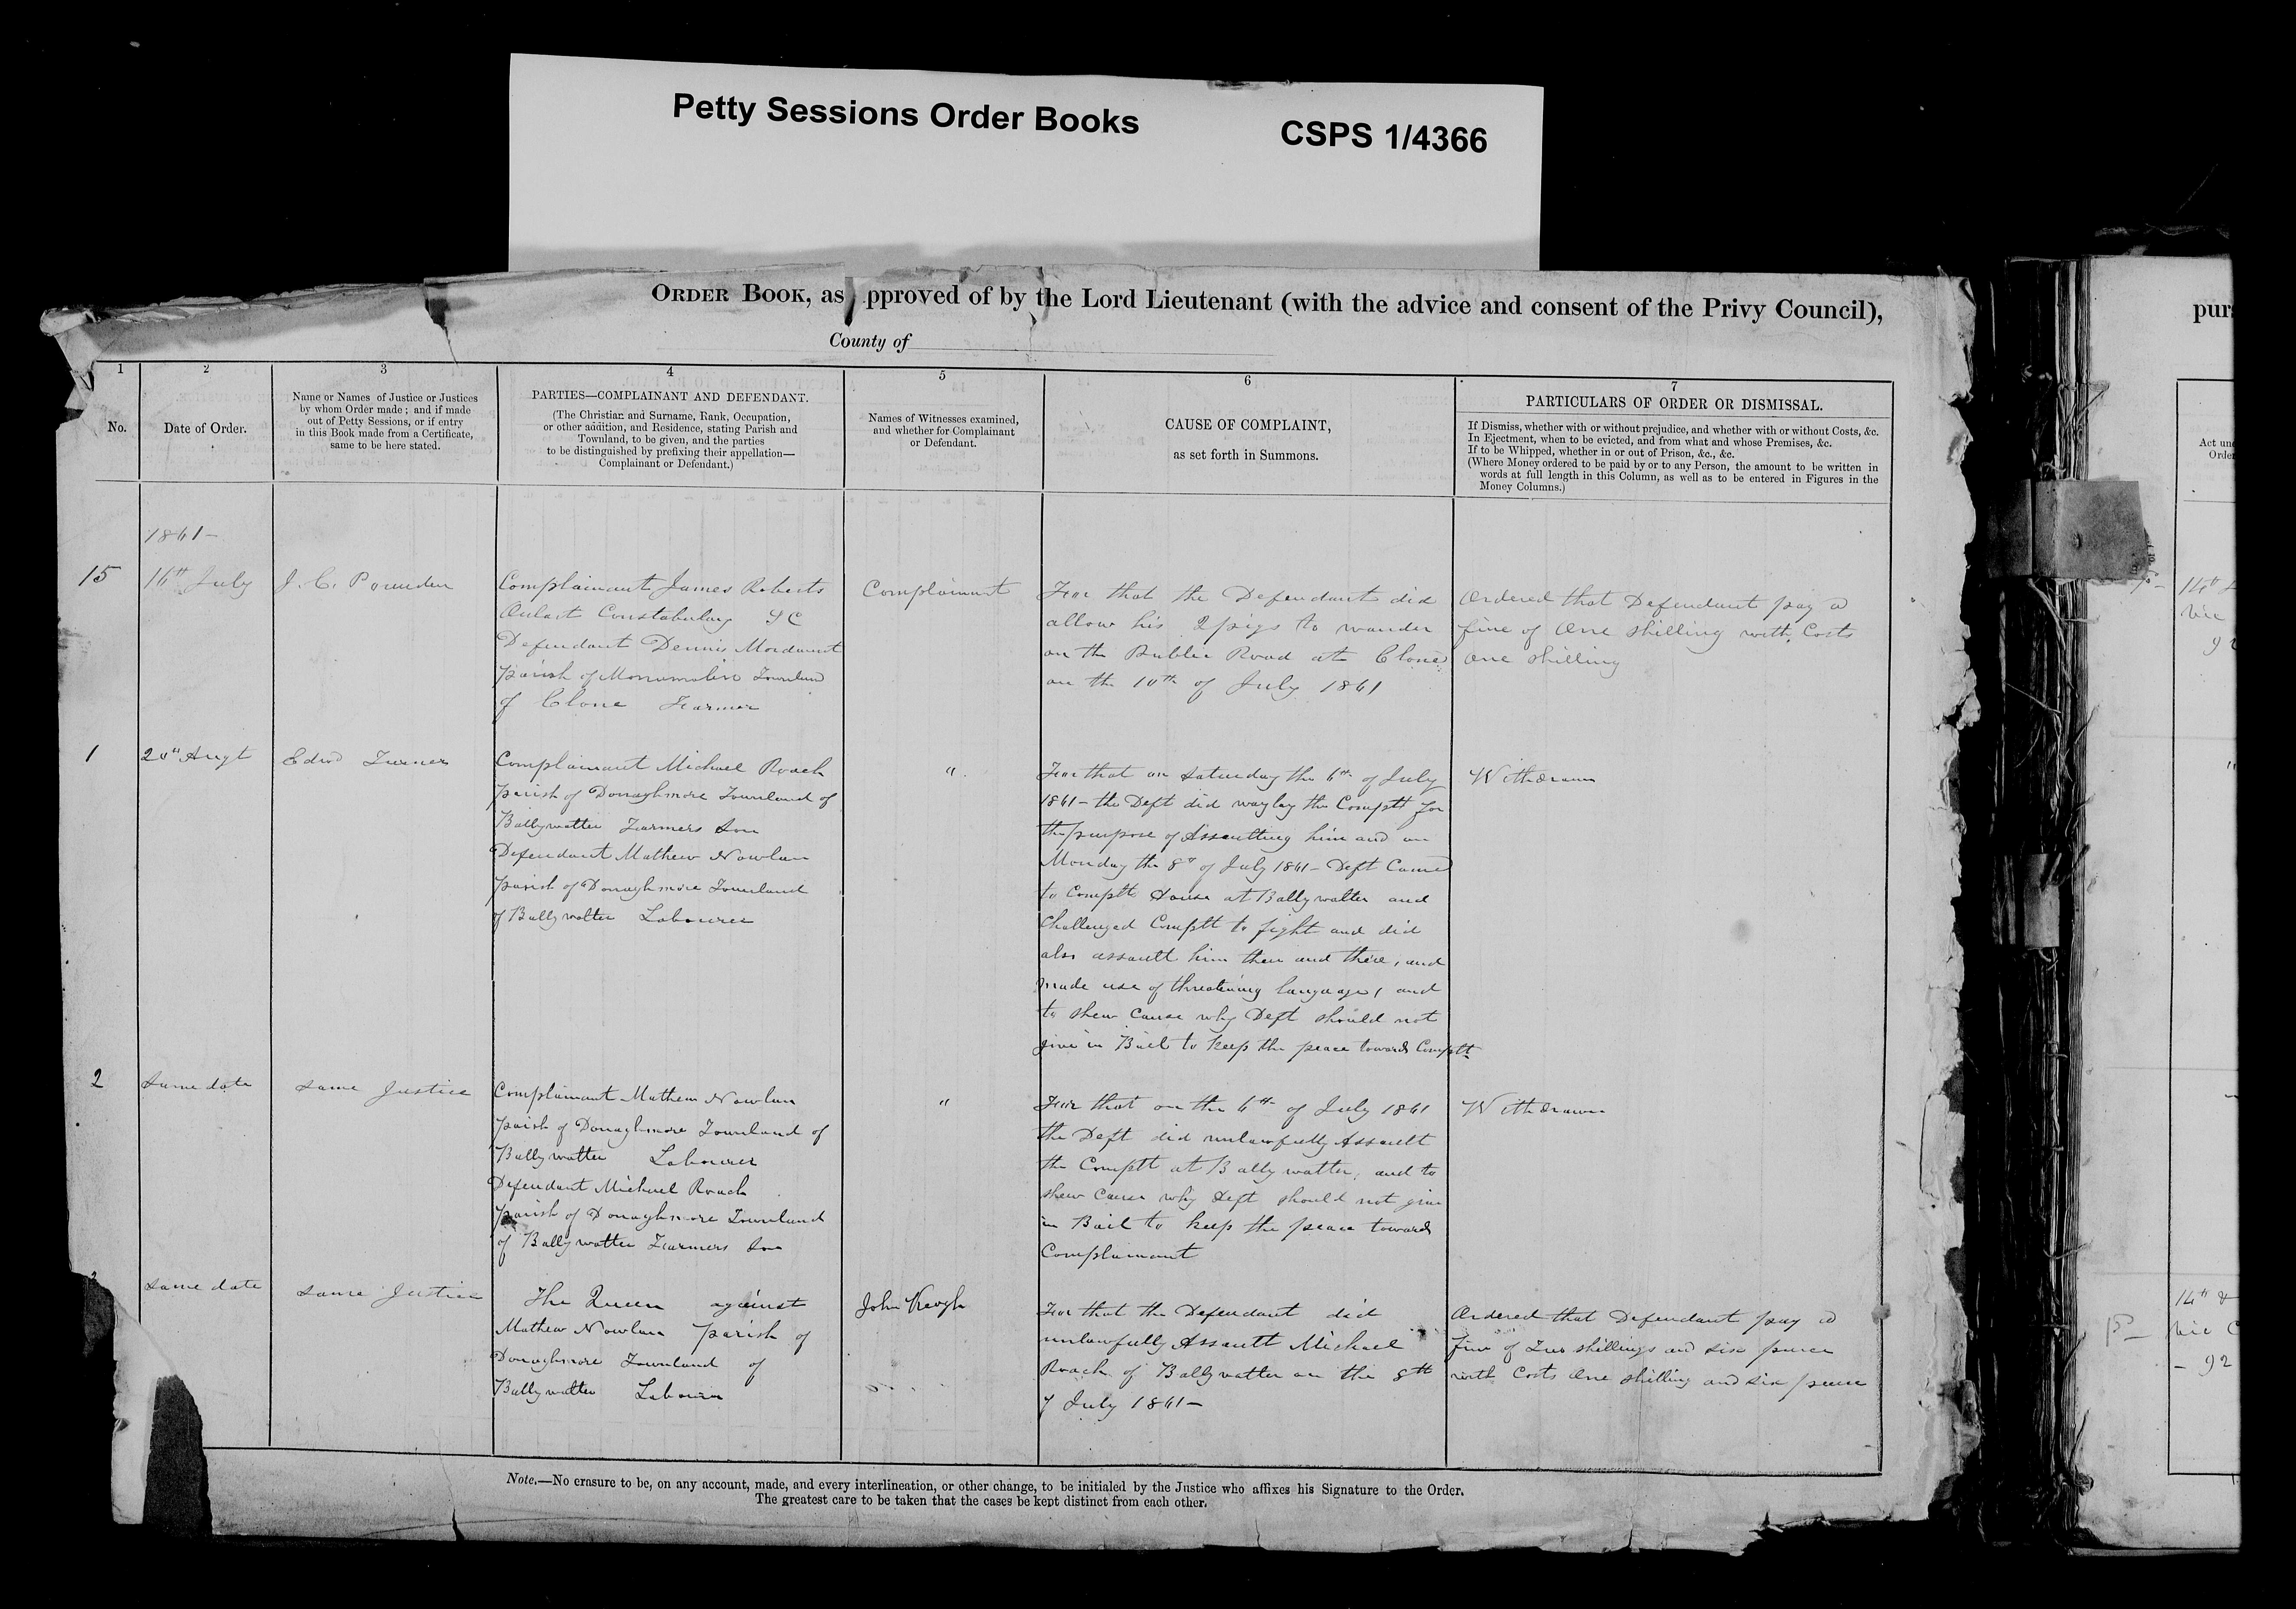 Petty Sessions Order Books
CSPS 1/4366
ORDER BOOK, as pproved of by the Lord Lieutenant (with the advice and consent of the Privy Council),
County of
1
No.
2
Date of Order.
3
Name or Names of Justice or Justices
by whom Order made; and if made
out of Petty Sessions, or if entry
in this Book made from a Certificate,
same to be here stated.
4
PARTIES—COMPLAINANT AND DEFENDANT.
(The Christian and Surname, Rank, Occupation,
or other addition, and Residence, stating Parish and
Townland, to be given, and the parties
to be distinguished by prefixing their appellation—
Complainant or Defendant.)
5
Names of Witnesses examined,
and whether for Complainant
or Defendant.
6
CAUSE OF COMPLAINT,
as set forth in Summons.
7
PARTICULARS OF ORDER OR DISMISSAL.
If Dismiss, whether with or without prejudice, and whether with or without Costs, &c.
In Ejectment, when to be evicted, and from what and whose Premises, &c.
If to be Whipped, whether in or out of Prison, &c., &c.
(Where Money ordered to be paid by or to any Person, the amount to be written in
words at full length in this Column, as well as to be entered in Figures in the
Money Columns.)
1861-
15
16th July
J. C. Pounden
Complainant James Roberts
Oulart Constabulary
Defendant Dennis Mordaunt
parish of Monamolin Townland
of Clone Farmer
Complainant
For that the Defendant did
allow his 2 pigs to wander
on the Public Road at Clone
on the 10th of July 1861
Ordered that Defendant pay a
fine of One shilling with Costs
One shilling
1
20th Augt
Edwd Turner
Complainant Michael Roach
parish of Donaghmore Townland of
Ballywatter Farmers Son
Defendant Mathew Nowlan
parish of Donaghmore Townland
of Ballywatter Labourer
"
For that on Saturday the 6th of July
1861- the Deft did waylay the Complt for
the purpose of Assaulting him and on
Monday the 8th of July 1861- Deft Came
to Complt House at Ballywatter and
Challenged Complt to fight and did
also assault him then and there, and
made use of threatening language, and
to shew Cause why Deft should not
give in Bail to keep the peace towards Complt
Withdrawn
2
Same date
Same Justice
Complainant Mathew Nowlan
parish of Donaghmore Townland of
Ballywatter Labourer
Defendant Michael Roach
parish of Donaghmore Townland
of Ballywatter Farmers Son
"
For that on the 6th of July 1861
the Deft did unlawfully Assault
the Complt at Ballywatter, and to
shew Cause why Deft should not give
in Bail to keep the peace towards
Complainant
Withdrawn
Same date
Same Justice
The Queen against
Mathew Nowlan parish of
Donaghmore Townland of
Ballywatter Labourer
John Keogh
For that the Defendant did
unlawfully Assault Michael
Roach of Ballywatter on the 8th
of July 1861-
Ordered that Defendant pay a
fine of Two shillings and six pence
with Costs One shilling and six pence
Note.—No erasure to be, on any account, made, and every interlineation, or other change, to be initialed by the Justice who affixes his Signature to the Order.
The greatest care to be taken that the cases be kept distinct from each other.
purs
Act und
Order
14th
Vic
92
14th &
Vic C
- 92